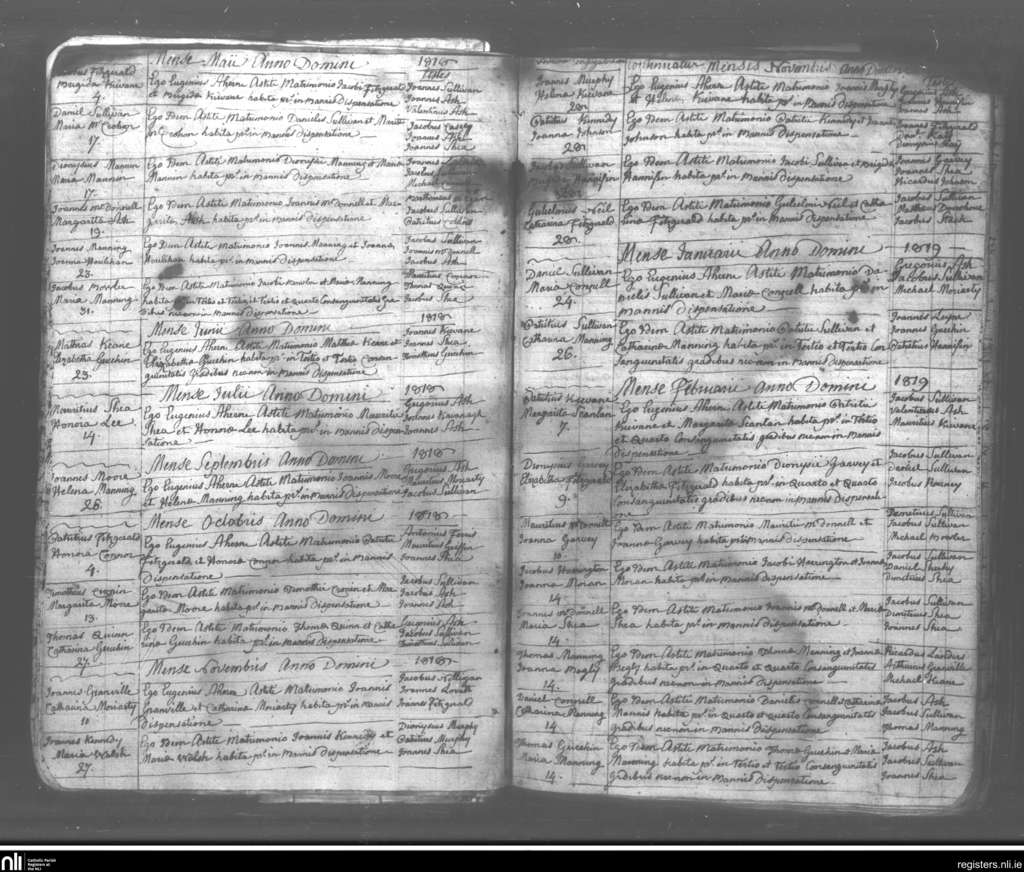 Mense Maii Anno Domini 1818
Testes
Jacobus Fitzgerald
Brigida Kirwane
4.
Ego Eugenius Ahern Astiti Matrimonio Jacobi Fitzgerald
et Brigida Kirwane habita prs. in Mannis Dispensatione
Joannes Sullivan
Joannes Ash
Valentinus Ash
Daniel Sullivan
17.
Ego Idem Astiti Matrimonio Danielis Sullivan et Mariæ
habita prs. in Mannis Dispensatione
Jacobus Casey
Joannes Ash
Joannes Shea
Dionysius Mannin
Maria Mannion
17.
Ego Idem Astiti Matrimonio Dionysii Manning et Maria
Mannin habita prs. in Mannis Dispensatione
Joannes
Jacobus
Michael
Joannes McDonnell
Margarita Ash
19.
Ego Idem Astiti Matrimonio Joannis McDonnell et Mar
garita Ash habita prs. in Mannis Dispensatione
Jacobus Sullivan
Patritius
Joannes Manning
Joanna Houlihan
23.
Ego Idem Astiti Matrimonio Joannis Manning et Joanna
Houlihan habita prs. in Mannis Dispensatione
Jacobus Sullivan
Joannes McDonnell
Jacobus Ash
Jacobus Bowler
Maria Manning
31.
Ego Idem Astiti Matrimonio Jacobi Bowler et Maria Manning
habita in Tertio et Tertio et Tertio et Quarto Consanguinitatis Gra
dibus necnon in Mannis Dispensatione
Thomas Quinn
Jacobus Shea
Mense Junii Anno Domini 1818
Mathias Keane
Elizabetha Guihin
23.
Ego Eugenius Ahern Astiti Matrimonio Mathæ Keane et
Elizabetha Guihin habita prs. in Tertio et Tertio Consan
guinitatis gradibus necnon in Mannis Dispensatione
Joannes Kirwane
Joannes Shea
Timotheus Guihin
Mense Julii Anno Domini 1818
Mauritius Shea
Honora Lee
14.
Ego Eugenius Ahern Astiti Matrimonio Mauritii
Shea et Honora Lee habita prs. in Mannis Dispen
satione
Gregorius Ash
Joannes Kavanagh
Joannes Ash
Mense Septembris Anno Domini 1818
Joannes Moore
Helena Manning
26.
Ego Eugenius Ahern Astiti Matrimonio Joannis Moore
et Helena Manning habita prs. in Mannis Dispensatione
Gregorius Ash
Mauritius Moriarty
Jacobus Sullivan
Mense Octobris Anno Domini 1818
Patritius Fitzgerald
Honora Connor
4.
Ego Eugenius Ahern Astiti Matrimonio Patritii
Fitzgerald et Honora Connor habita prs. in Mannis
Dispensatione
Antonius
Mauritius Griffin
Joannes Shea
Timotheus
Margarita Moore
13.
Ego Idem Astiti Matrimonio Timothei et Mar
garita Moore habita prs. in Mannis Dispensatione
Jacobus Sullivan
Jacobus Ash
Joannes Ash
Thomas Quinn
Catharina Guihin
27.
Ego Idem Astiti Matrimonio Thoma Quinn et Catha
rina Guihin habita prs. in Mannis Dispensatione
Gregorius Ash
Jacobus Sullivan
Timotheus Sullivan
Mense Novembris Anno Domini 1818
Joannes Granville
Catharina Moriarty
10
Ego Eugenius Ahern Astiti Matrimonio Joannis
Granville et Catharina Moriarty habita prs. in Mannis
Dispensatione
Jacobus
Joannes
Joannes Fitzgerald
Joannes Kennedy
Maria Walsh
27.
Ego Idem Astiti Matrimonio Joannis Kennedy et
Maria Walsh habita prs. in Mannis Dispensatione
Dionysius Murphy
Patritius Murphy
Joannes Shea
Continuatur Mensis Novembris Anno
Joannes Murphy
Helena Kirwane
28.
Ego Eugenius Ahern Astiti Matrimonio Joannis Murphy
et Helena Kirwane habita prs. in Mannis Dispensatione
Patritius Kennedy
Joanna Johnson
28.
Ego Idem Astiti Matrimonio Patritii Kennedy et Joanna
Johnson habita prs. in Mannis Dispensatione
Fitzgerald
Jacobus Sullivan
Hannifin
Ego Idem Astiti Matrimonio Jacobi Sullivan et Brigida
Hannifin habita prs. in Mannis Dispensatione
Joannes Garvey
Joannes Shea
Ricardus Johnson
Gulielmus Neil
Catharina Fitzgerald
28.
Ego Idem Astiti Matrimonio Gulielmi Neil et Catha
rina Fitzgerald habita prs. in Mannis Dispensatione
Jacobus Sullivan
Jacobus
Mense Januarii Anno Domini 1819
Daniel Sullivan
Maria Connell
24.
Ego Eugenius Ahern Astiti Matrimonio Da
nielis Sullivan et Maria Connell habita prs. in
Mannis Dispensatione
Gregorius Ash
Jacobus Sullivan
Michael Moriarty
Patritius Sullivan
Catharina Manning
26.
Ego Idem Astiti Matrimonio Patritii Sullivan et
Catharina Manning habita prs. in Tertio et Tertio Con
sanguinitatis gradibus necnon in Mannis Dispensatione
Joannes
Joannes Guihin
Patritius Hannifin
Mense Februarii Anno Domini 1819
Patritius Kirwane
Margarita Scanlan
7.
Ego Eugenius Ahern Astiti Matrimonio Patritii
Kirwane et Margarita Scanlan habita prs. in Tertio
et Quarto Consanguinitatis gradibus necnon in Mannis
Dispensatione
Jacobus Sullivan
Valentinus Ash
Mauritius Kirwane
Dionysius Garvey
Elizabetha Fitzgerald
9.
Ego Idem Astiti Matrimonio Dionysii Garvey et
Elizabetha Fitzgerald habita prs. in Quarto et Quarto
Consanguinitatis gradibus necnon in Mannis Dispensati
one
Jacobus Sullivan
Daniel Sullivan
Jacobus
Mauritius McDonnell
Joanna Garvey
10
Ego Idem Astiti Matrimonio Mauritii McDonnell et
Joanna Garvey habita prs. in Mannis Dispensatione
Demetrius Sullivan
Jacobus Sullivan
Michael Bowler
Jacobus Harrington
Joanna Moran
14
Ego Idem Astiti Matrimonio Jacobi Harrington et Joanna
Moran habita prs. in Mannis Dispensatione
Jacobus Sullivan
Daniel Sheehy
Dimitrius Shea
Joannes McDonnell
Maria Shea
14
Ego Idem Astiti Matrimonio Joannis McDonnell et Maria
Shea habita prs. in Mannis Dispensatione
Jacobus Sullivan
Dimitrius Shea
Joannes Shea
Thomas Manning
Joanna
14.
Ego Idem Astiti Matrimonio Thoma Manning et Joanna
habita prs. in Quarto et Quarto Consanguinitatis
gradibus necnon in Mannis Dispensatione
Ricardus Landers
Arthurus Granville
Michael Keane
Daniel Connell
Catharina Manning
14
Ego Idem Astiti Matrimonio Danielis Connell et Catharina
Mannis habita prs. in Quarto et Quarto Consanguinitatis
gradibus necnon in Mannis Dispensatione
Jacobus Ash
Jacobus Sullivan
Thomas Manning
Thomas Guihin
Maria Manning
14.
Ego Idem Astiti Matrimonio Thoma Guihin et Maria
Manning habita prs. in Tertio et Tertio Consanguinitatis
gradibus necnon in Mannis Dispensatione
Jacobus Ash
Jacobus Sullivan
Joannes Shea
nli
Catholic Parish
Registers at
the NLI
registers.nli.ie